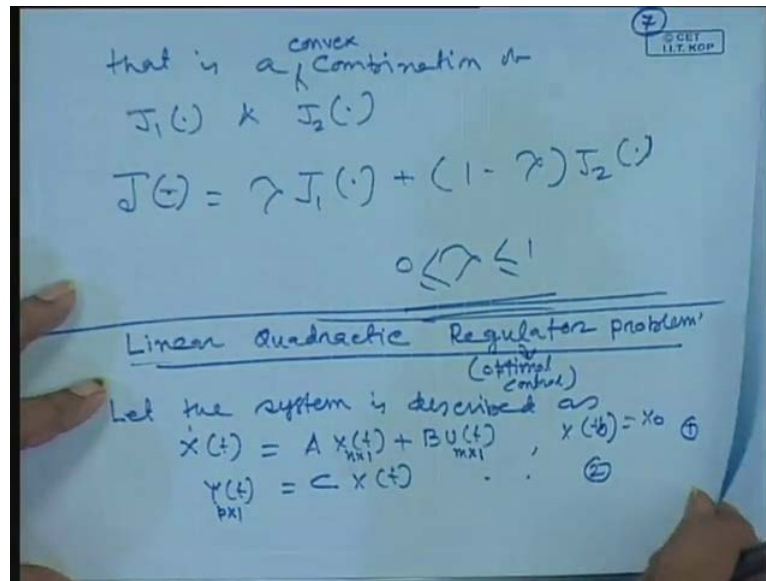 7
© CET
I.I.T. KGP
that is a convex combination of
J₁(·) & J₂(·)
J(·) = λ J₁(·) + (1 - λ) J₂(·)
0 ≤ λ ≤ 1
Linear Quadractic Regulator problem
(optimal control)
Let the system is described as
ẋ(t) = A x(t) + B u(t) , x(t₀) = x₀ ①
n×1 m×1
Y(t) = C x(t) . . ②
p×1